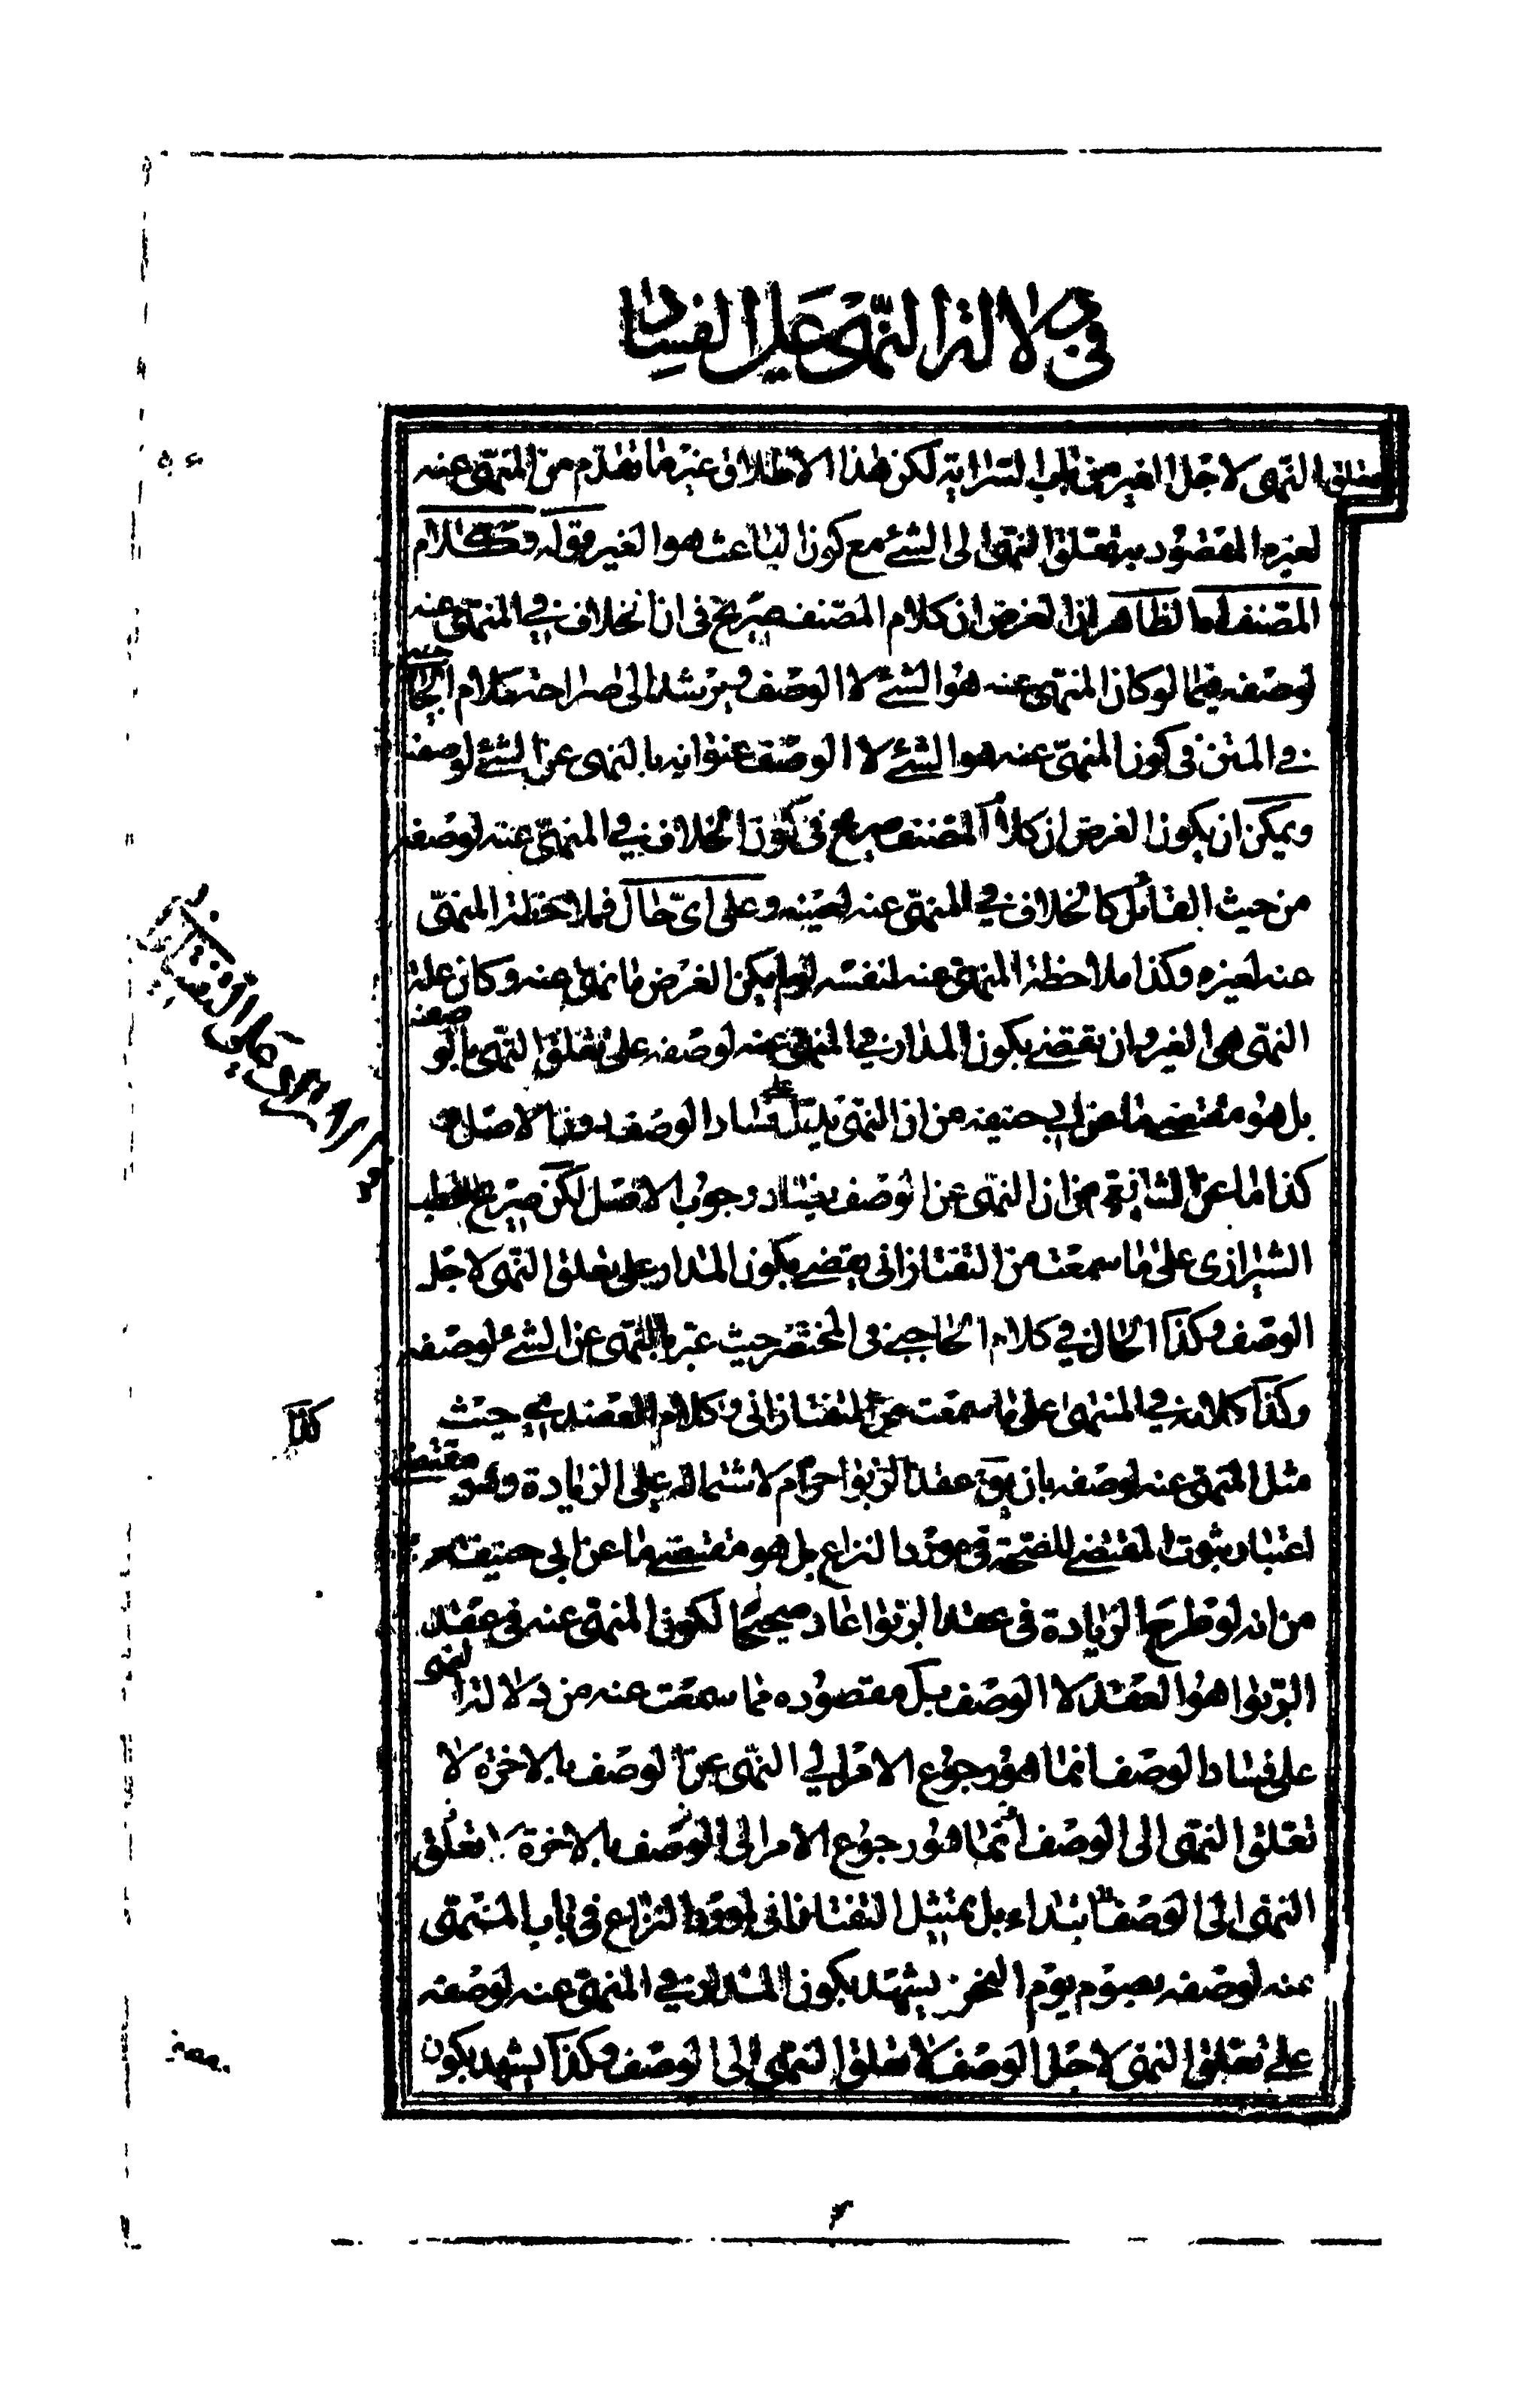 في دلالة النهى على الفساد
تعلق النهى لاجل الغير من باب السراية لكن هذا الاطلاق غير ما تقدم من المنهى عنه
لغيره المقصود به تعلق النهى الى الشئ مع كون الباعث هو الغير قوله وكلام
المصنف اه الظاهر ان الغرض ان كلام المصنف صريح فى ان الخلاف في المنهى عنه
لوصفه فيما لو كان المنهى عنه هو الشئ لا الوصف ويرشد الى صراحة كلام الحاجبى
في المتن فى كون المنهى عنه هو الشئ لا الوصف عنوانه بالنهى عن الشئ لوصفه
ويمكن ان يكون الغرض ان كلام المصنف صريح فى كون الخلاف في المنهى عنه لوصفه
من حيث القائل كالخلاف في المنهى عنه لعينه وعلى اىّ حال فملاحظة المنهى
عنه لغيره وكذا ملاحظة المنهى عنه لنفسه لو لم يكن الغرض ما نهى عنه وكان علة
النهى هو الغير وان تقتضى بكون المدار في المنهى عنه لوصفه على تعلق النهى بالوصفه
بل هو مقتضى ما عن ابي حنيفه من ان النهى يدل على فساد الوصف دون الاصل و
كذا ما عن الشافعى من ان النهى عن الوصف يضاد وجوب الاصل لكن صريح القطب
الشيرازى على ما سمعت من التفتازانى يقتضى بكون المدار على تعلق النهى لاجل
الوصف وكذا الحال في كلام الحاجبى فى المختصر حيث عبر بالنهى عن الشئ لوصفه
وكذا كلامه في المنتهى على ما سمعت من التفتازانى وكلام العضدى حيث
مثل المنهى عنه لوصفه بان يق عقد الربوا حرام لاشتماله على الزيادة وهو مقتضى
اعتبار ثبوت المقتضى للصّحة فى مورد النزاع بل هو مقتضى ما عن ابى حنيفه
من انه لو طرح الزيادة فى عقد الربوا عاد صحيحا لكون المنهى عنه فى عقد
الربوا هو العقد لا الوصف بل مقصوده مما سمعت عنه من دلالة النهى
على فساد الوصف انما هو رجوع الامر الى النهى عن الوصف بالاخرة لا
تعلق النهى الى الوصف انما هو رجوع الامر الى الوصف بالاخرة لا تعلق
النهى الى الوصف ابتداء بل تمثيل التفتازانى لمورد النزاع فى باب المنهى
عنه لوصفه بصوم يوم النحر يشهد بكون المدار في المنهى عنه لوصفه
على تعلق النهى لاجل الوصف لا تعلق النهى الى الوصف وكذا يشهد بكون
كذا